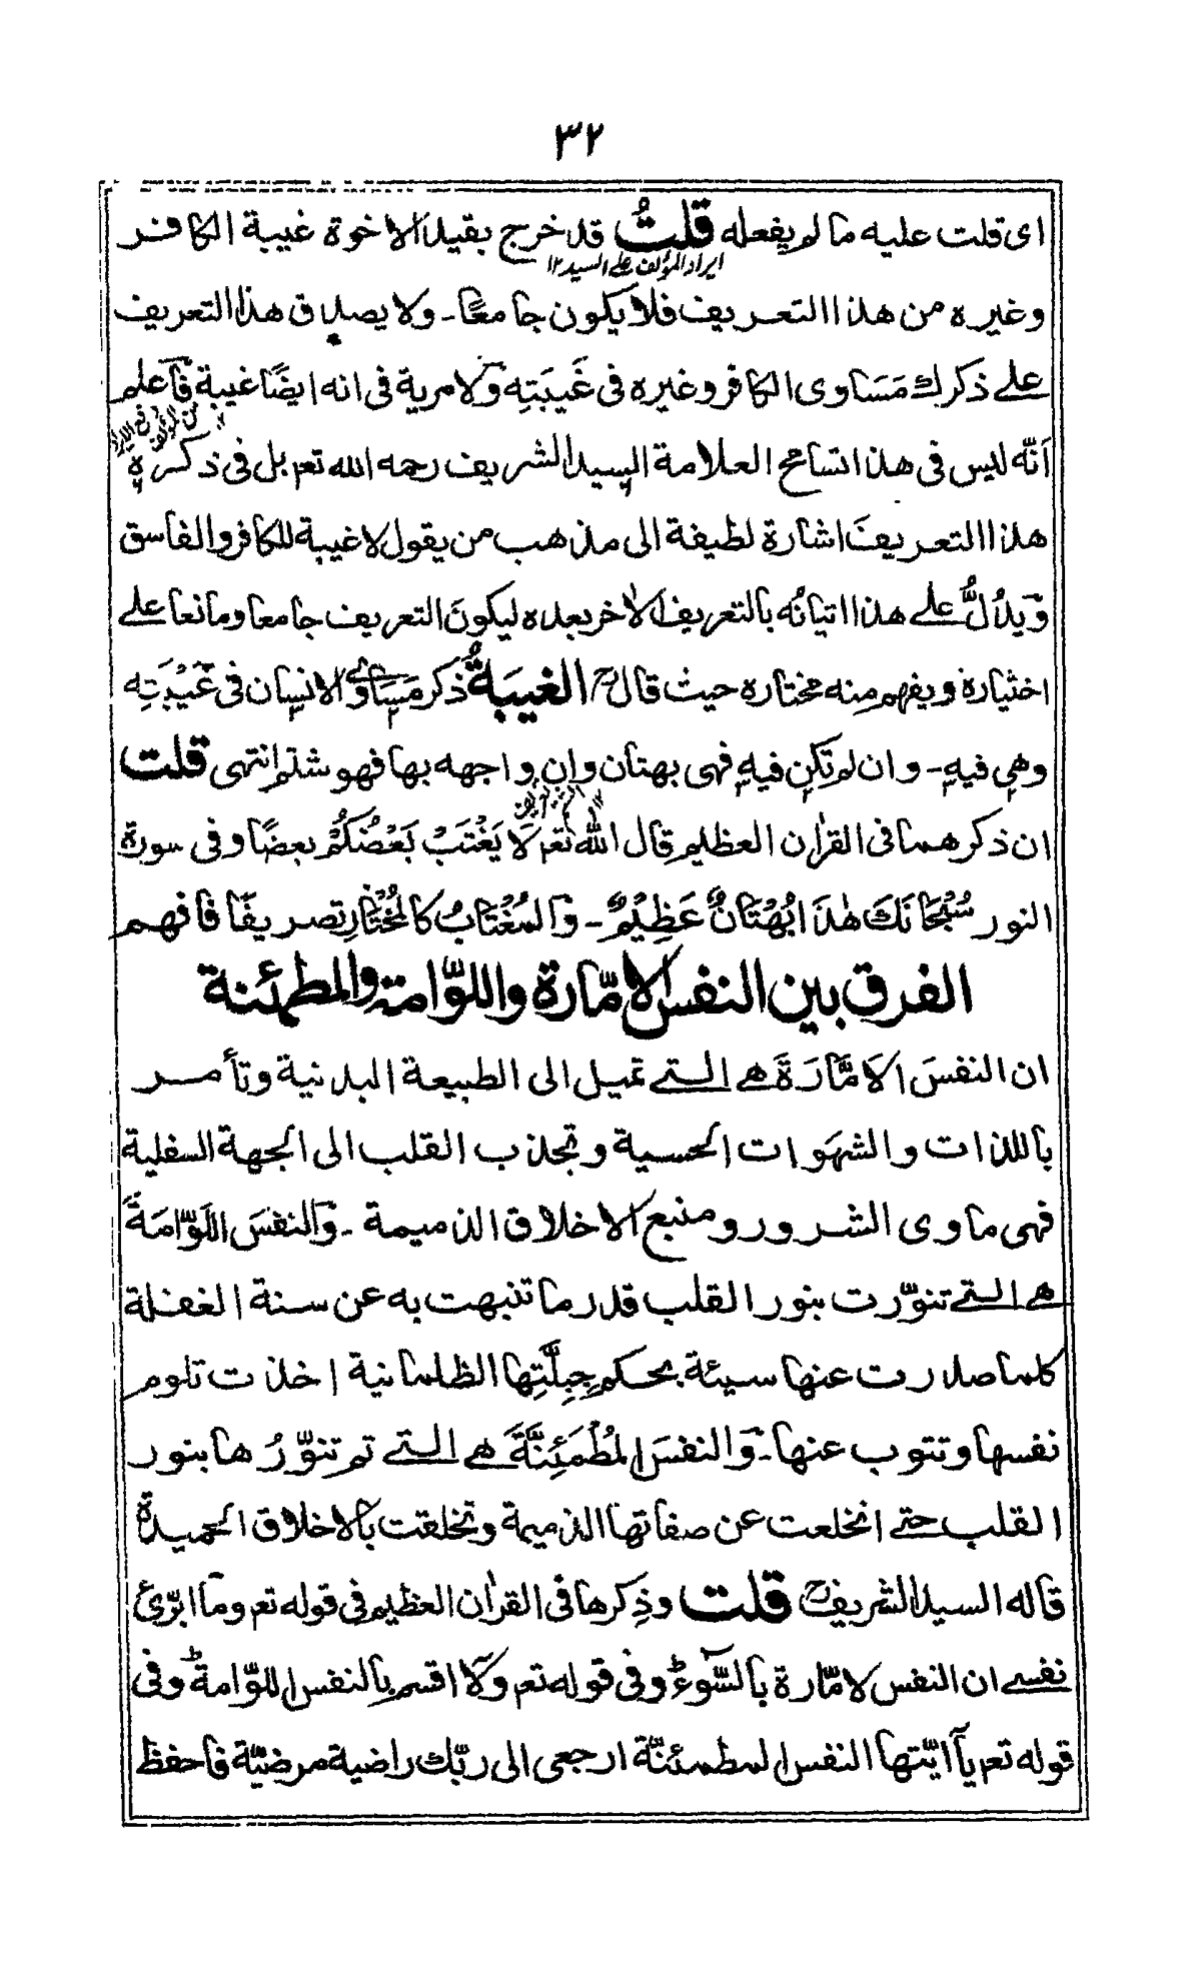 ٣٢
اى قلت عليه مالم يفعله قلتُ قد خرج بقيد الاخوة غيبة الكافر
ايراد المؤلف على السيد ١٢
وغيره من هذا التعريف فلا يكون جامعًا - ولا يصدق هذا التعريف
على ذكرك مَسَاوى الكافر وغيره فى غَيبَتِه وَلامرية فى انه ايضًا غيبة فَاعلم
اَنّه ليس فى هذا تسامح العلامة السيد الشريف رحمه الله تعم بل فى ذكره
هذا التعريفَ اشارة لطيفة الى مذهب من يقول لا غيبة للكافر والفاسق
وَيدُلُّ على هذا اتيانُه بالتعريف الاٰخر بعده ليكونَ التعريف جامعا ومانعا على
اختياره ويفهم منه مختاره حيث قال رح الغيبَةُ ذكر مَسَاوى الانسان فى غَيْبَتِه
وهى فيهِ - وان لم تكن فيهِ فهى بهتان وان واجهه بها فهو شتم انتهى قلت
ان ذكرهما فى القراٰن العظيم قال اللّٰه تعم لَا يَغْتَبْ بَعْضُكُمْ بعضًا وفى سورة
النور سُبْحَانَكَ هٰذَا بُهْتَانٌ عَظِيْمٌ - وَالمُغْتَابُ كالمُخْتَارِ تصريفًا فافهم
الفرق بين النفس الامّارة واللوّامة والمطمئنة
ان النفسَ الاَمَّارَةَ هى التى تميل الى الطبيعة البدنية وتأمر
باللذات والشهَوات الحسية وتجذب القلب الى الجهة السفلية
فهى ماوى الشرور ومنبع الاخلاق الذميمة - وَالنفسَ اللَوّامَةَ
هى التى تنوّرت بنور القلب قدر ما تنبهت به عن سنة الغفلة
كلما صدرت عنها سيئة بحكم جِبِلَّتِها الظلمانية اخذت تلوم
نفسها وتتوب عنها - وَالنفسَ المُطْمَئِنَّةَ هى التى تم تنوّرُها بنور
القلب حتى انخلعت عن صفاتها الذميمة وتخلقت بالاخلاق الحميدة
قاله السيد الشريف رح قلت وذِكرها فى القراٰن العظيم فى قوله تعم وما ابرّئ
نفسى ان النفس لامّارة بالسّوءِ وفى قوله تعم وَلَا اقسم بالنفس اللوّامة وفى
قوله تعم يآايّتها النفس المطمئنّة ارجعى الى ربّك راضية مرضيّة فاحفظ